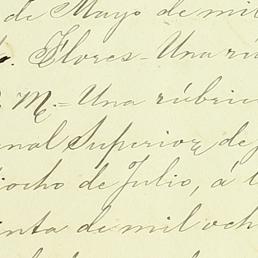 de Mayo de mil
Flores=Una rú
M.=Una rúbric
nal Superior, de
iocho de Julio, á l
inta de mil och